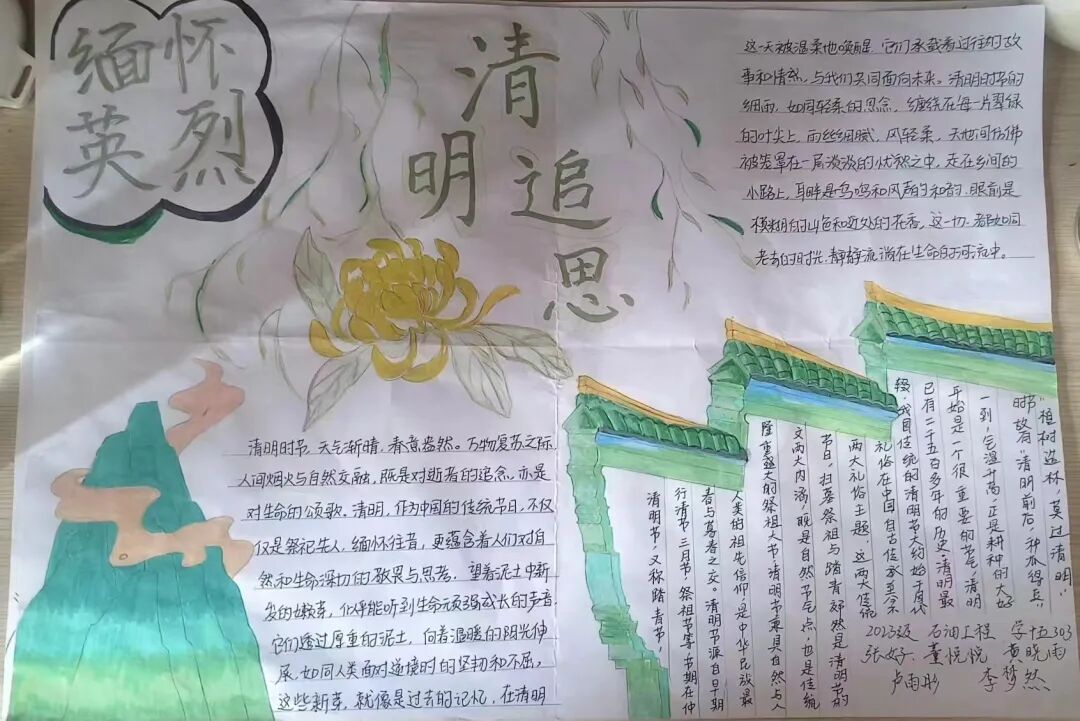 缅怀
英烈
清
明追
思
清明时节，天气渐晴，春意盎然。万物复苏之际，
人间烟火与自然交融，既是对逝者的追念，亦是
对生命的颂歌。清明，作为中国的传统节日，不仅
仅是祭祀先人，缅怀往昔，更蕴含着人们对自
然和生命深切的敬畏与思考。望着泥土中新
发的嫩芽，似乎能听到生命顽强成长的声音，
它们透过厚重的泥土，向着温暖的阳光伸
展，如同人类面对逆境时的坚韧和不屈。
这些新芽，就像是过去的记忆，在清明
这一天被温柔地唤醒，它们承载着过往的故
事和情感，与我们共同面向未来。清明时节的
细雨，如同轻柔的思念，缠绕在每一片翠绿
的叶尖上，雨丝细腻，风轻柔，天地间仿佛
被笼罩在一层淡淡的忧愁之中，走在乡间的
小路上，耳畔是鸟鸣和风声的和韵，眼前是
模糊的山色和近处的花香，这一切，都如同
老去的时光，静静流淌在生命的河流中。
清明节，又称踏青节，
行清节、三月节、祭祖节等，节期在仲
春与暮春之交。清明节源自早期
人类的祖先信仰，是中华民族最
隆重盛大的祭祖大节清明节兼具自然与人
文两大内涵，既是自然节气点，也是传统
节日，扫墓祭祖与踏青郊然是清明节的
两大礼俗主题，这两大传统
礼俗在中国自古传承至今
辍。我国传统的清明节大约始于周代
已有二千五百多年的历史，清明最
开始是一个很重要的节气，清明
一到，气温升高，正是耕种的大好
时节，故有“清明前后，种瓜得
植树造林，莫过清明”
2023级 石油工程 学十五303
张好、董悦悦 黄晓雨
卢雨彤 李梦然